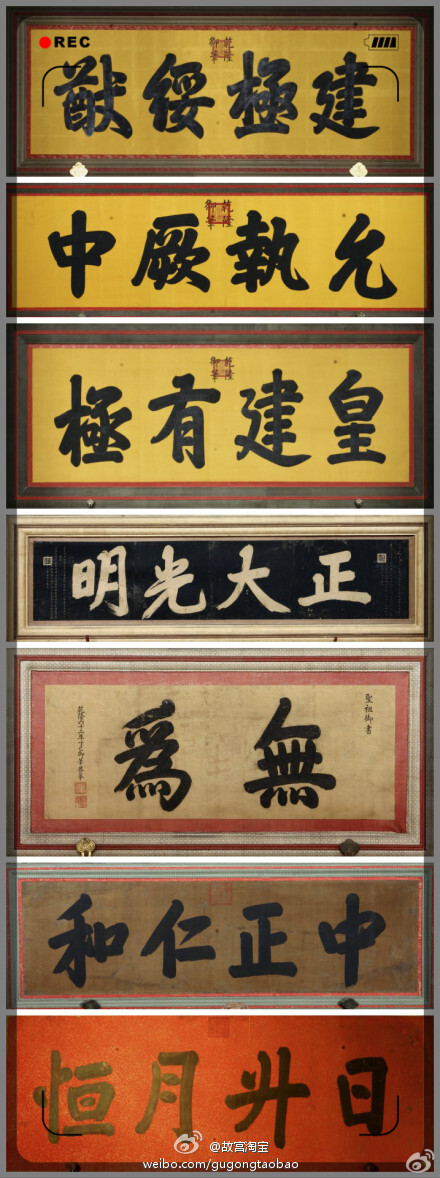 REC
乾隆御筆
建極綏猷
乾隆御筆
允執厥中
乾隆御筆
皇建有極
正大光明
聖祖御書
無爲
乾隆六十二年丁巳御筆恭摹
中正仁和
日升月恒
@故宫淘宝
weibo.com/gugongtaobao